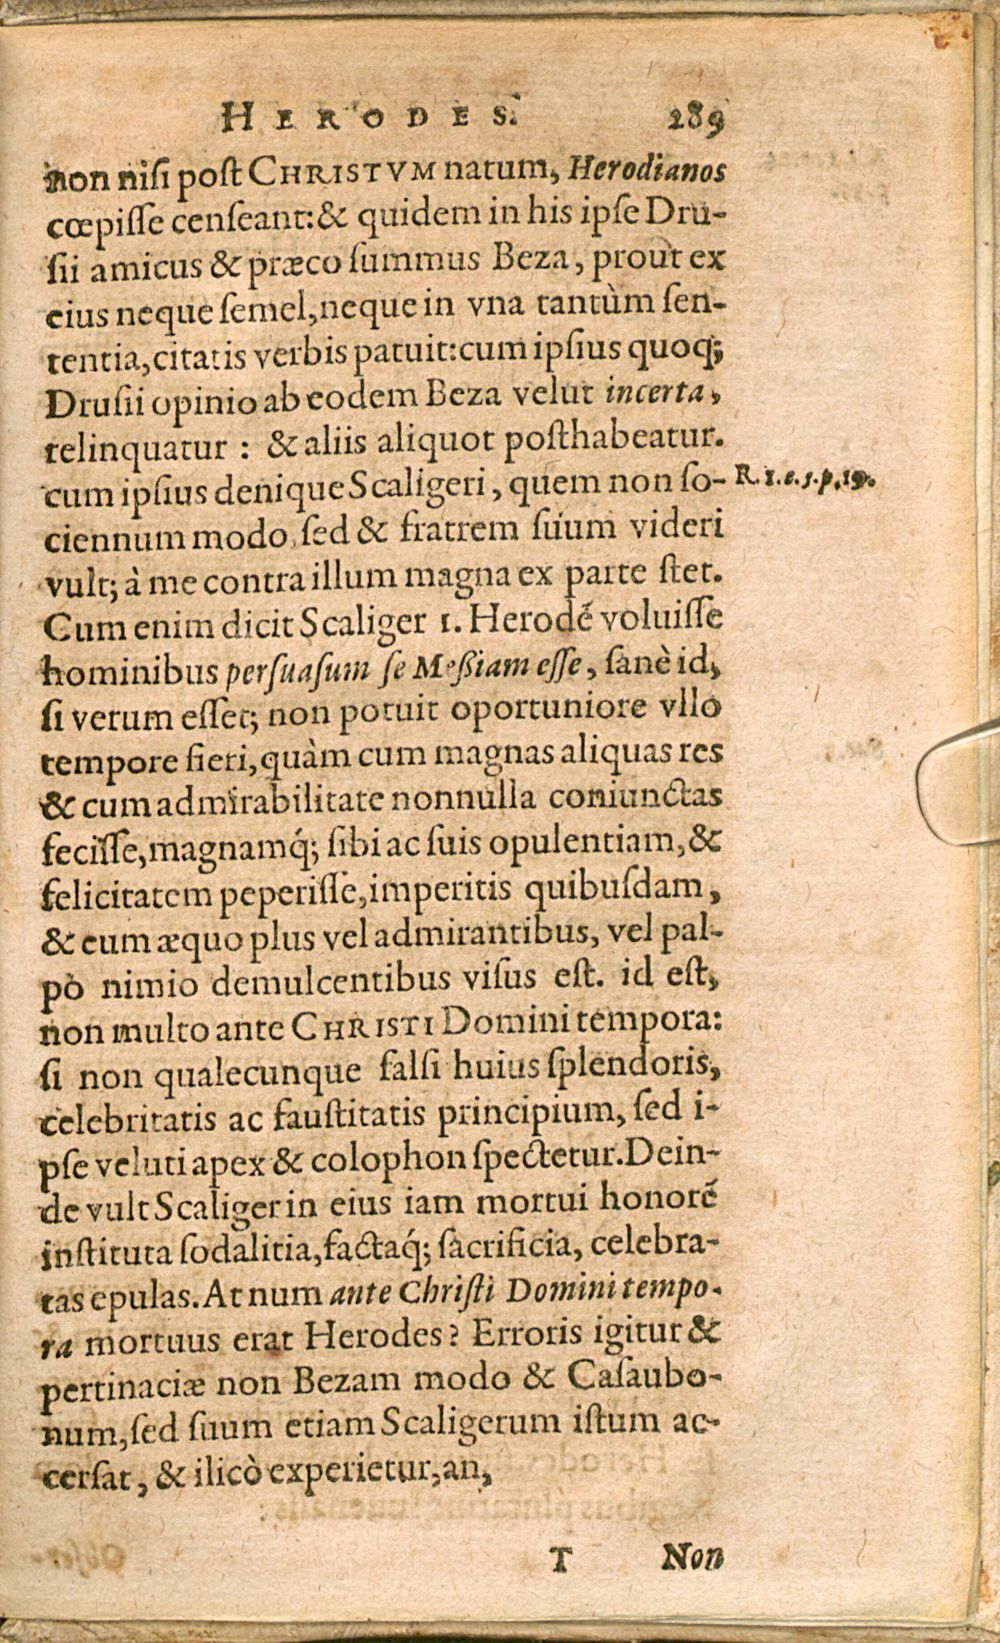 HERODES. 289
non nisi post CHRISTVM natum, Herodianos
cœpisse censeant: & quidem in his ipse Dru-
sii amicus & præco summus Beza, prout ex
eius neque semel, neque in vna tantùm sen-
tentia, citatis verbis patuit: cum ipsius quoq;
Drusii opinio ab eodem Beza velut incerta,
relinquatur : & aliis aliquot posthabeatur.
cum ipsius denique Scaligeri, quem non so- R. 1. e. s. p. 19.
ciennum modo, sed & fratrem suum videri
vult; à me contra illum magna ex parte stet.
Cum enim dicit Scaliger 1. Herodẽ voluisse
hominibus persuasum se Meßiam esse, sanè id,
si verum esset; non potuit oportuniore vllo
tempore fieri, quàm cum magnas aliquas res
& cum admirabilitate nonnulla coniunctas
fecisse, magnamq́; sibi ac suis opulentiam, &
felicitatem peperisse, imperitis quibusdam,
& eum æquo plus vel admirantibus, vel pal-
pò nimio demulcentibus visus est. id est,
non multo ante CHRISTI Domini tempora:
si non qualecunque falsi huius splendoris,
celebritatis ac faustitatis principium, sed i-
pse veluti apex & colophon spectetur. Dein-
de vult Scaliger in eius iam mortui honorẽ
instituta sodalitia, factaq́; sacrificia, celebra-
tas epulas. At num ante Christi Domini tempo-
ra mortuus erat Herodes? Erroris igitur &
pertinaciæ non Bezam modo & Casaubo-
num, sed suum etiam Scaligerum istum ac-
cersat, & ilicò experietur, an,
T Non